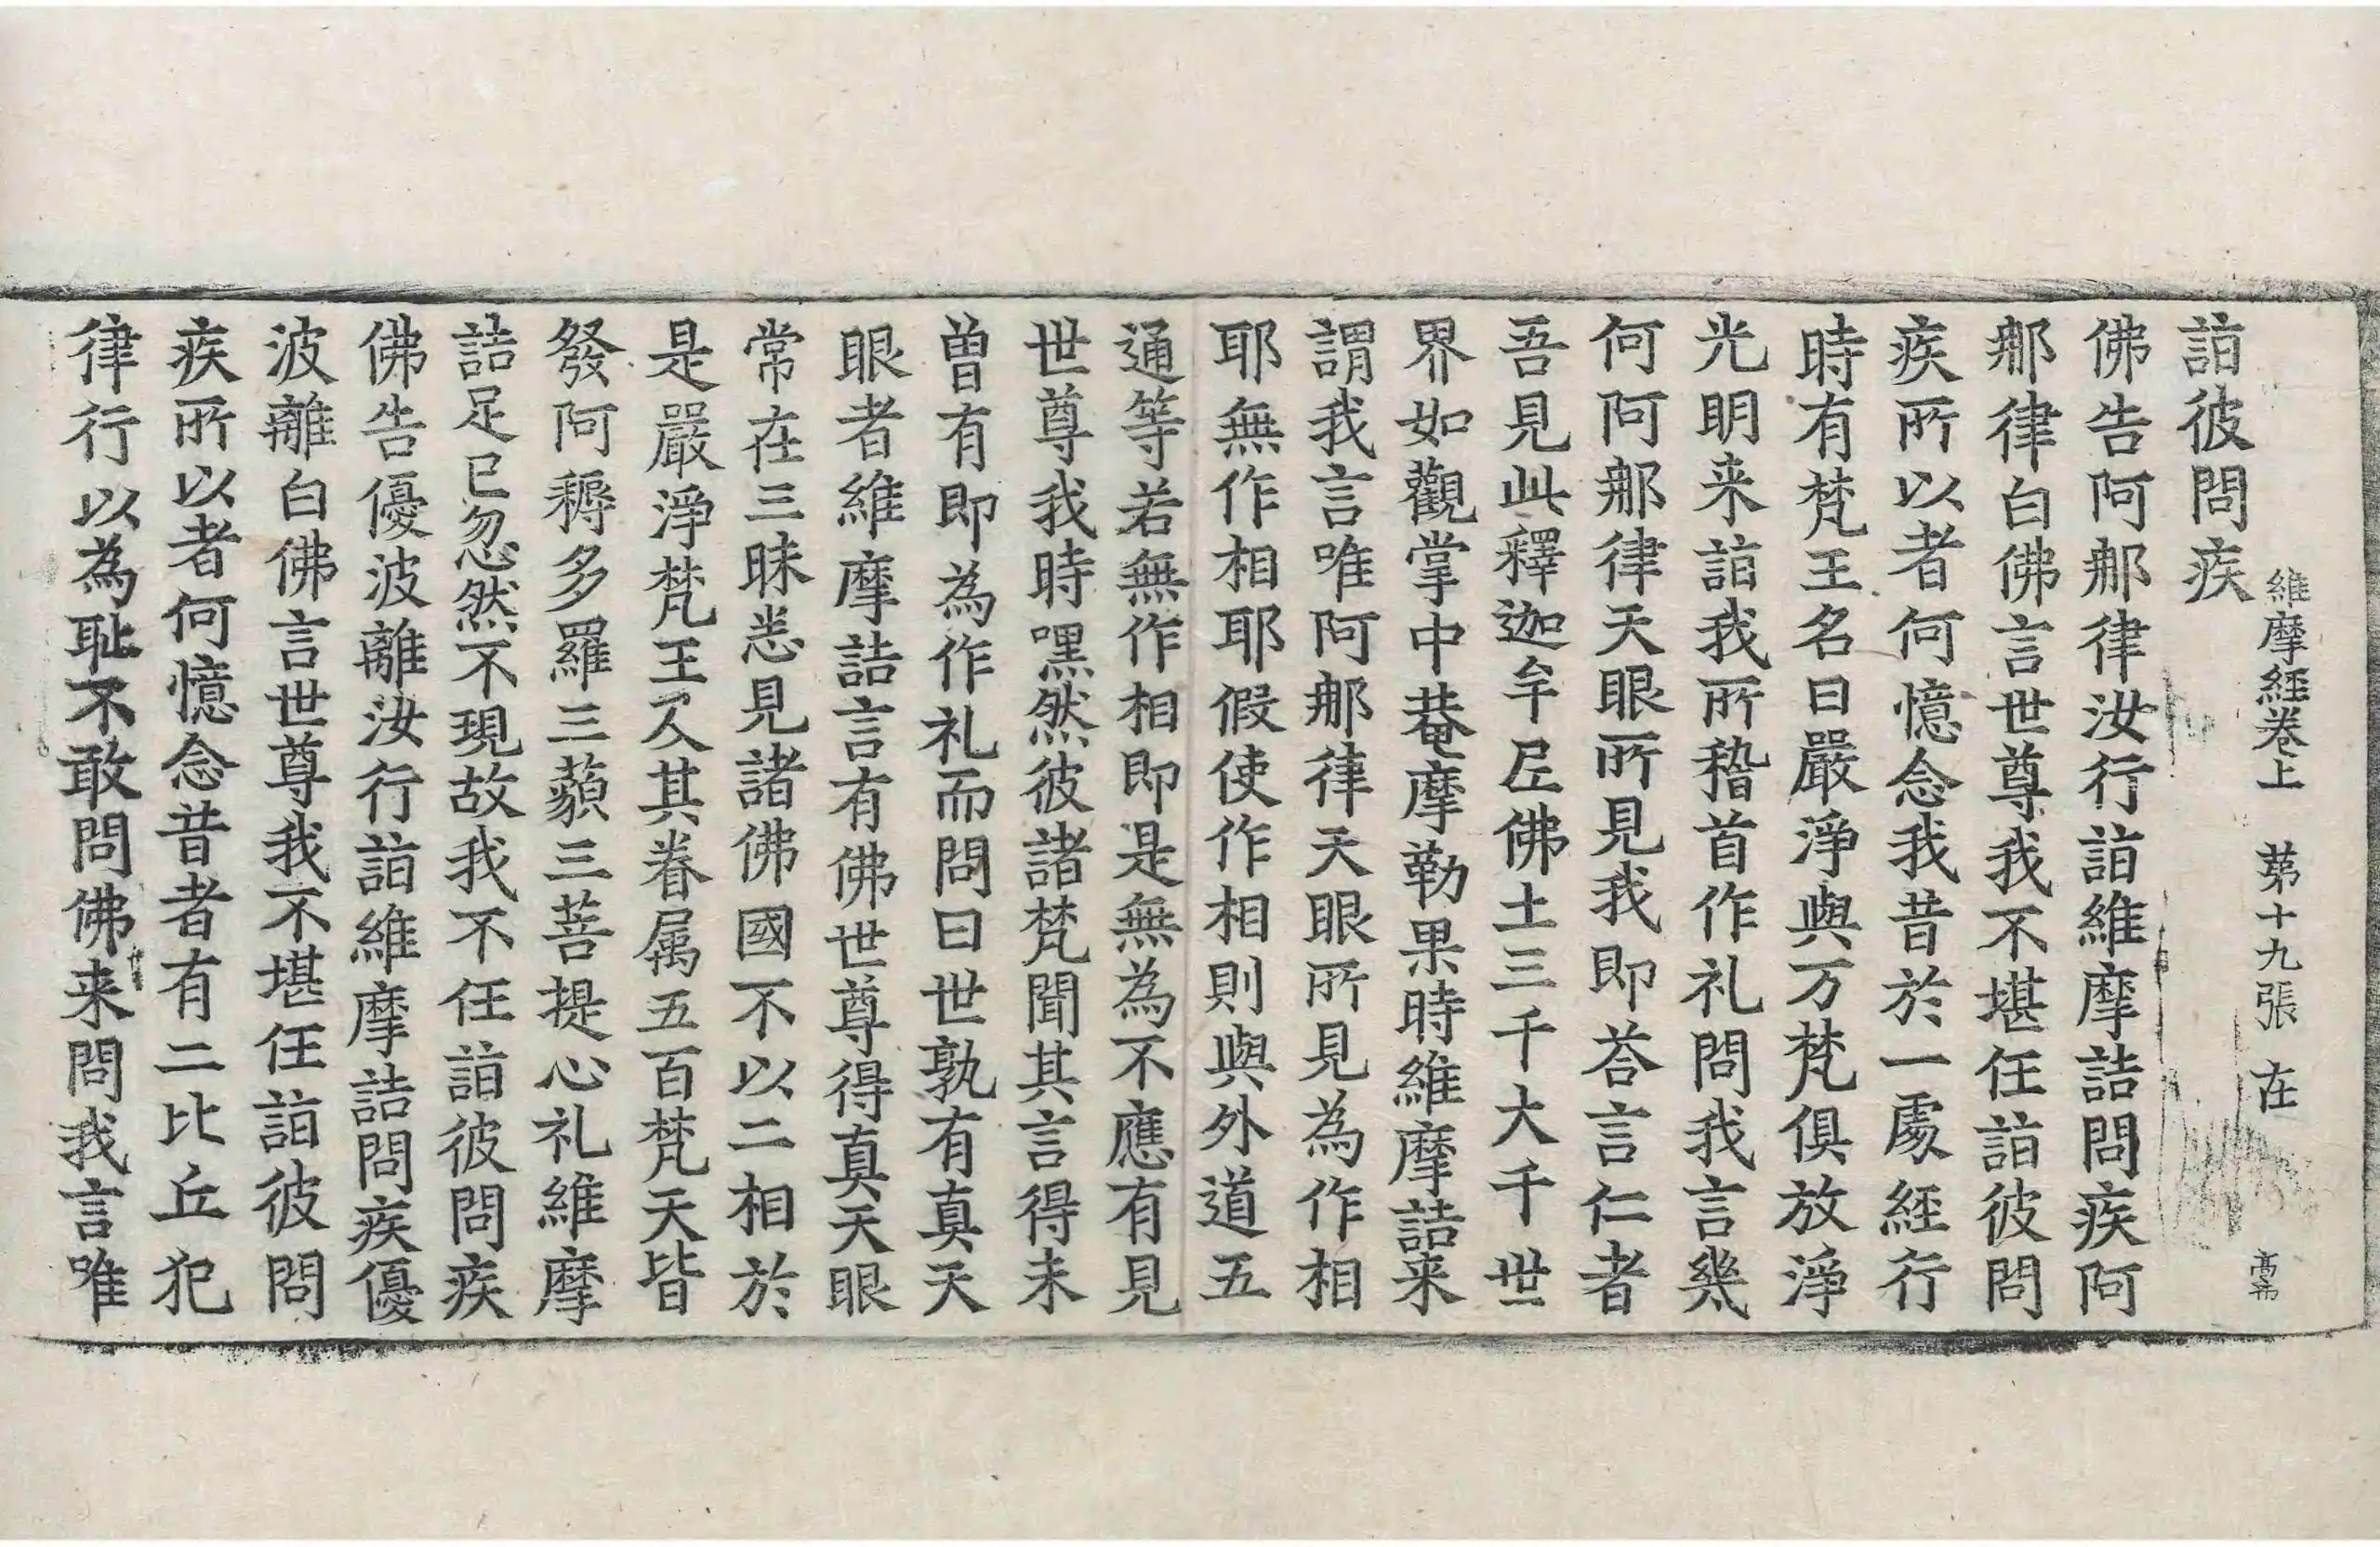 維摩経巻上 苐十九張 在 髙希
詣彼問疾
佛告阿那律汝行詣維摩詰問疾阿
那律白佛言世尊我不堪任詣彼問
疾所以者何憶念我昔於一處経行
時有梵王名曰嚴淨與万梵俱放淨
光明来詣我所稽首作礼問我言幾
何阿那律天眼所見我即荅言仁者
吾見此釋迦牟尼佛土三千大千世
界如觀掌中菴摩勒果時維摩詰来
謂我言唯阿那律天眼所見為作相
耶無作相耶假使作相則與外道五
通等若無作相即是無為不應有見
世尊我時嘿然彼諸梵聞其言得未
曽有即為作礼而問曰世孰有真天
眼者維摩詰言有佛世尊得真天眼
常在三昧悉見諸佛國不以二相於
是嚴淨梵王及其眷属五百梵天皆
發阿耨多羅三藐三菩提心礼維摩
詰足已忽然不現故我不任詣彼問疾
佛告優波離汝行詣維摩詰問疾優
波離白佛言世尊我不堪任詣彼問
疾所以者何憶念昔者有二比丘犯
律行以為恥不敢問佛来問我言唯